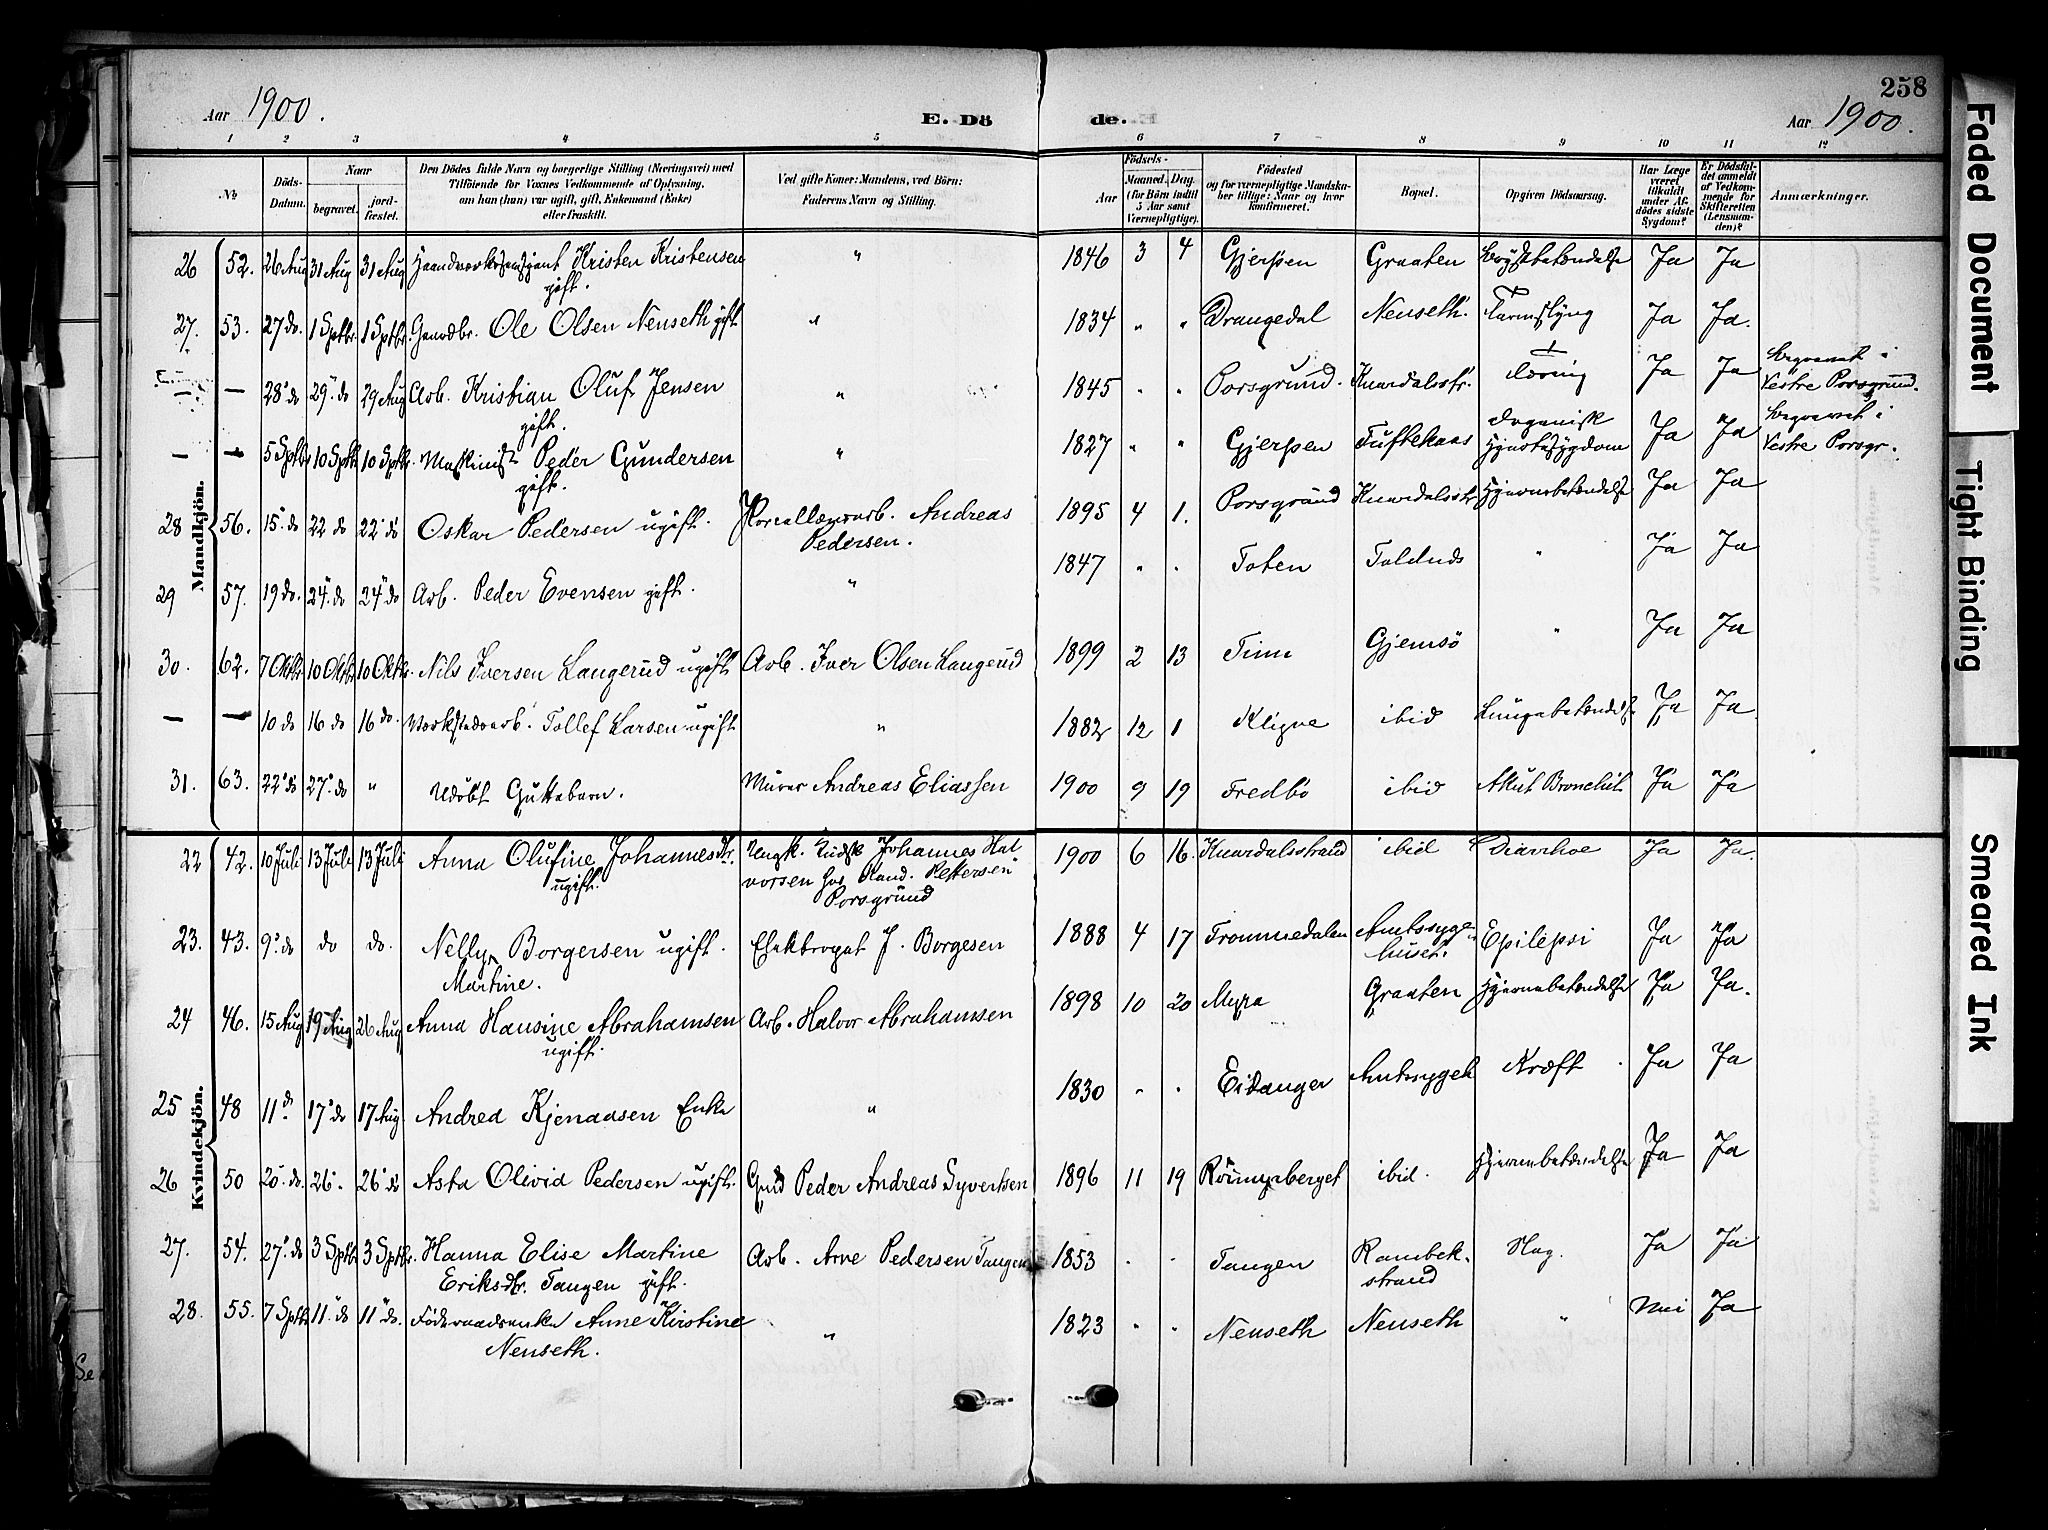 258
Aar 1900.
E. Dö de.
Aar 1900.
1 2 3 4 5 6 7 8 9 10 11 12
№
Döds-Datum.
Naar
begravet.
jord-fæstet.
Den Dödes fulde Navn og borgerlige Stilling (Næringsvei) med
Tilföiende for Voxnes Vedkommende af Oplysning,
om han (hun) var ugift, gift, Enkemand (Enke)
eller fraskilt.
Ved gifte Koner: Mandens, ved Börn:
Faderens Navn og Stilling.
Födsels-
Aar
Maaned. Dag.
(for Börn indtil
5 Aar samt
Værnepligtige).
Födested
og for værnepligtige Mandska-
ber tillige: Naar og hvor
konfirmeret.
Bopæl.
Opgiven Dödsaarsag.
Har Læge
været
tilkaldt
under Af-
dödes sidste
Sygdom?
Er Dödsfal-
det anmeldt
af Vedkom-
mende for
Skifteretten
(Lensman-
den)?
Anmærkninger.
Mandkjön.
26 52. 26 Aug 31 Aug 31 Aug Kristen Kristensen " 1846 3 4 Gjerpen Graaten Brystbetændelse Ja Ja
gift.
27. 53. 27 do. 1 Sptbr. 1 Sptbr. Gaardbr. Ole Olsen Nenseth gift " 1834 " " Drangedal Nenseth. Tarmslyng Ja Ja.
— — 28 do 29 do 29 Aug Arb. Kristian Oluf Jensen " 1845 " " Porsgrund. Knardalsstr. Tæring Ja Ja begravet i
gift. Vestre Porsgrund.
— — 5 Sptbr 10 Sptbr 10 Sptbr. Maskinist Peder Gundersen " 1827 " " Gjerpen Tuftekaas Organisk Hjertesygdom Ja Ja begravet i
gift. Vestre Porsgr.
28 56. 15 do 22 do 22 do Oskar Pedersen ugift. Porcellænsarb. Andreas 1895 4 1. Porsgrund Knardalsstr Hjernebetændelse Ja Ja
Pedersen.
29 57. 19 do. 24 do 24 do Arb. Peder Evensen gift. " 1847 " " Toten Toldnds " Ja Ja
30. 62. 7 Oktbr 10 Oktbr 10 Oktbr. Nils Iversen Langerud ugift Arb. Iver Olsen Langerud 1899 2 13 Tinn Gjemsö " Ja Ja
— — 10 do 16 do 16 do. Værkstedsarb. Tollef Larsen ugift " 1882 12 1 Kligne ibid Lungebetændelse Ja Ja
31. 63. 22 do 27 do " Udöbt Guttebarn. Murer Andreas Eliassen 1900 9 19 Fredbo ibid Akut Bronchit Ja Ja
Kvindekjön.
22 42. 10 Juli 13 Juli 13 Juli Anna Olufine Johannesdtr. Ungk. Kudsk Johannes Hal 1900 6 16. Knardalsstrand ibid Diarrhoe Ja Ja.
ugift. vorsen hos Kand. Pettersen
Porsgrund
23. 43. 9 do do do. Nelly Borgersen ugift. J. Borgesen 1888 4 17 Trommedalen Amtssyge- Epilepsi Ja Ja
Martine. huset.
24 46. 15 Aug 19 Aug 26 Aug Anna Hansine Abrahamsen Arb. Halvor Abrahamsen 1898 10 20 Myra Graaten Hjernebetændelse Ja Ja.
ugift.
25 48 11 d 17 do 17 Aug Andrea Kjenaasen Enke " 1830 " " Eidanger Amtssygeh Kræft Ja Ja
26 50 20 do. 26. 26 do Asta Olivia Pedersen ugift. Gmd Peder Andreas Syvertsen 1896 11 19 Rönningberget ibid. Hjernebetændelse Ja Ja
27. 54. 27 do 3 Sptbr 3 Sptbr. Hanna Elise Martine Arb. Arve Pedersen Tangen 1853 " " Tangen Rambek- Slag. Ja Ja
Eriksdtr. Tangen gift. strand
28. 55. 7 Sptbr 11 do 11 do. Föderaadsenke Anne Kirstine " 1823 " " Nenseth Nenseth " Nei Ja
Nenseth.
Faded Document
Tight Binding
Smeared Ink